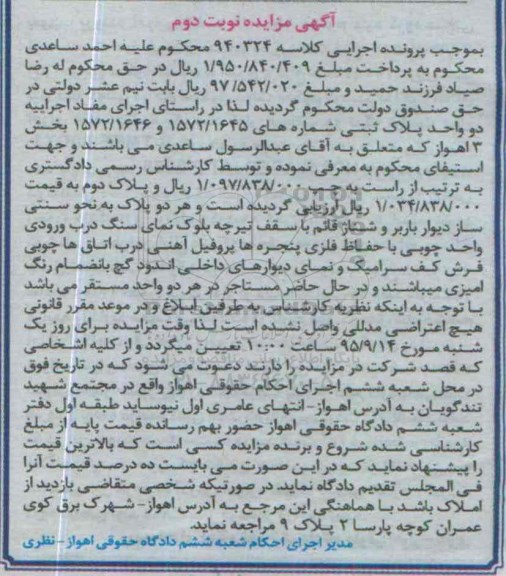 آگهی مزایده نوبت دوم
بموجب پرونده اجرایی کلاسه ۹۴۰۳۲۴ محکوم علیه احمد ساعدی
محکوم به پرداخت مبلغ ۱/۹۵۰/۸۴۰/۴۰۹ ریال در حق محکوم له رضا
صیاد فرزند حمید و مبلغ ۹۷/۵۴۲/۰۲۰ ریال بابت نیم عشر دولتی در
حق صندوق دولت محکوم گردیده لذا در راستای اجرای مفاد اجراییه
دو واحد پلاک ثبتی شماره های ۱۵۷۲/۱۶۴۵ و ۱۵۷۲/۱۶۴۶ بخش
۳ اهواز که متعلق به آقای عبدالرسول ساعدی می باشند و جهت
استیفای محکوم به معرفی نموده و توسط کارشناس رسمی دادگستری
به ترتیب از راست به چپ ۱/۰۹۷/۸۳۸/۰۰۰ ریال و پلاک دوم به قیمت
۱/۰۳۴/۸۳۸/۰۰۰ ریال ارزیابی گردیده است و هر دو پلاک به نحو سنتی
ساز دیوار باربر و شناژ قائم با سقف تیرچه بلوک نمای سنگ درب ورودی
واحد چوبی با حفاظ فلزی پنجره ها پروفیل آهنی درب اتاق ها چوبی
فرش کف سرامیک و نمای دیوارهای داخلی اندود گچ بانضمام رنگ
امیزی میباشند و در حال حاضر مستاجر در هر دو واحد مستقر می باشد
با توجه به اینکه نظریه کارشناس به طرفین ابلاغ و در موعد مقرر قانونی
هیچ اعتراضی مدللی واصل نشده است لذا وقت مزایده برای روز یک
شنبه مورخ ۹۵/۹/۱۴ ساعت ۱۰:۰۰ تعیین میگردد و از کلیه اشخاصی
که قصد شرکت در مزایده را دارند دعوت می شود که در تاریخ فوق
در محل شعبه ششم اجرای احکام حقوقی اهواز واقع در مجتمع شهید
تندگویان به آدرس اهواز-انتهای عامری اول نیوساید طبقه اول دفتر
شعبه ششم دادگاه حقوقی اهواز حضور بهم رسانده قیمت پایه از مبلغ
کارشناسی شده شروع و برنده مزایده کسی است که بالاترین قیمت
را پیشنهاد نماید که در این صورت می بایست ده درصد قیمت آنرا
فی المجلس تقدیم دادگاه نماید. در صورتیکه شخصی متقاضی بازدید از
املاک باشد با هماهنگی این مرجع به آدرس اهواز- شهرک برق کوی
عمران کوچه پارسا ۲ پلاک ۹ مراجعه نماید.
مدیر اجرای احکام شعبه ششم دادگاه حقوقی اهواز - نظری